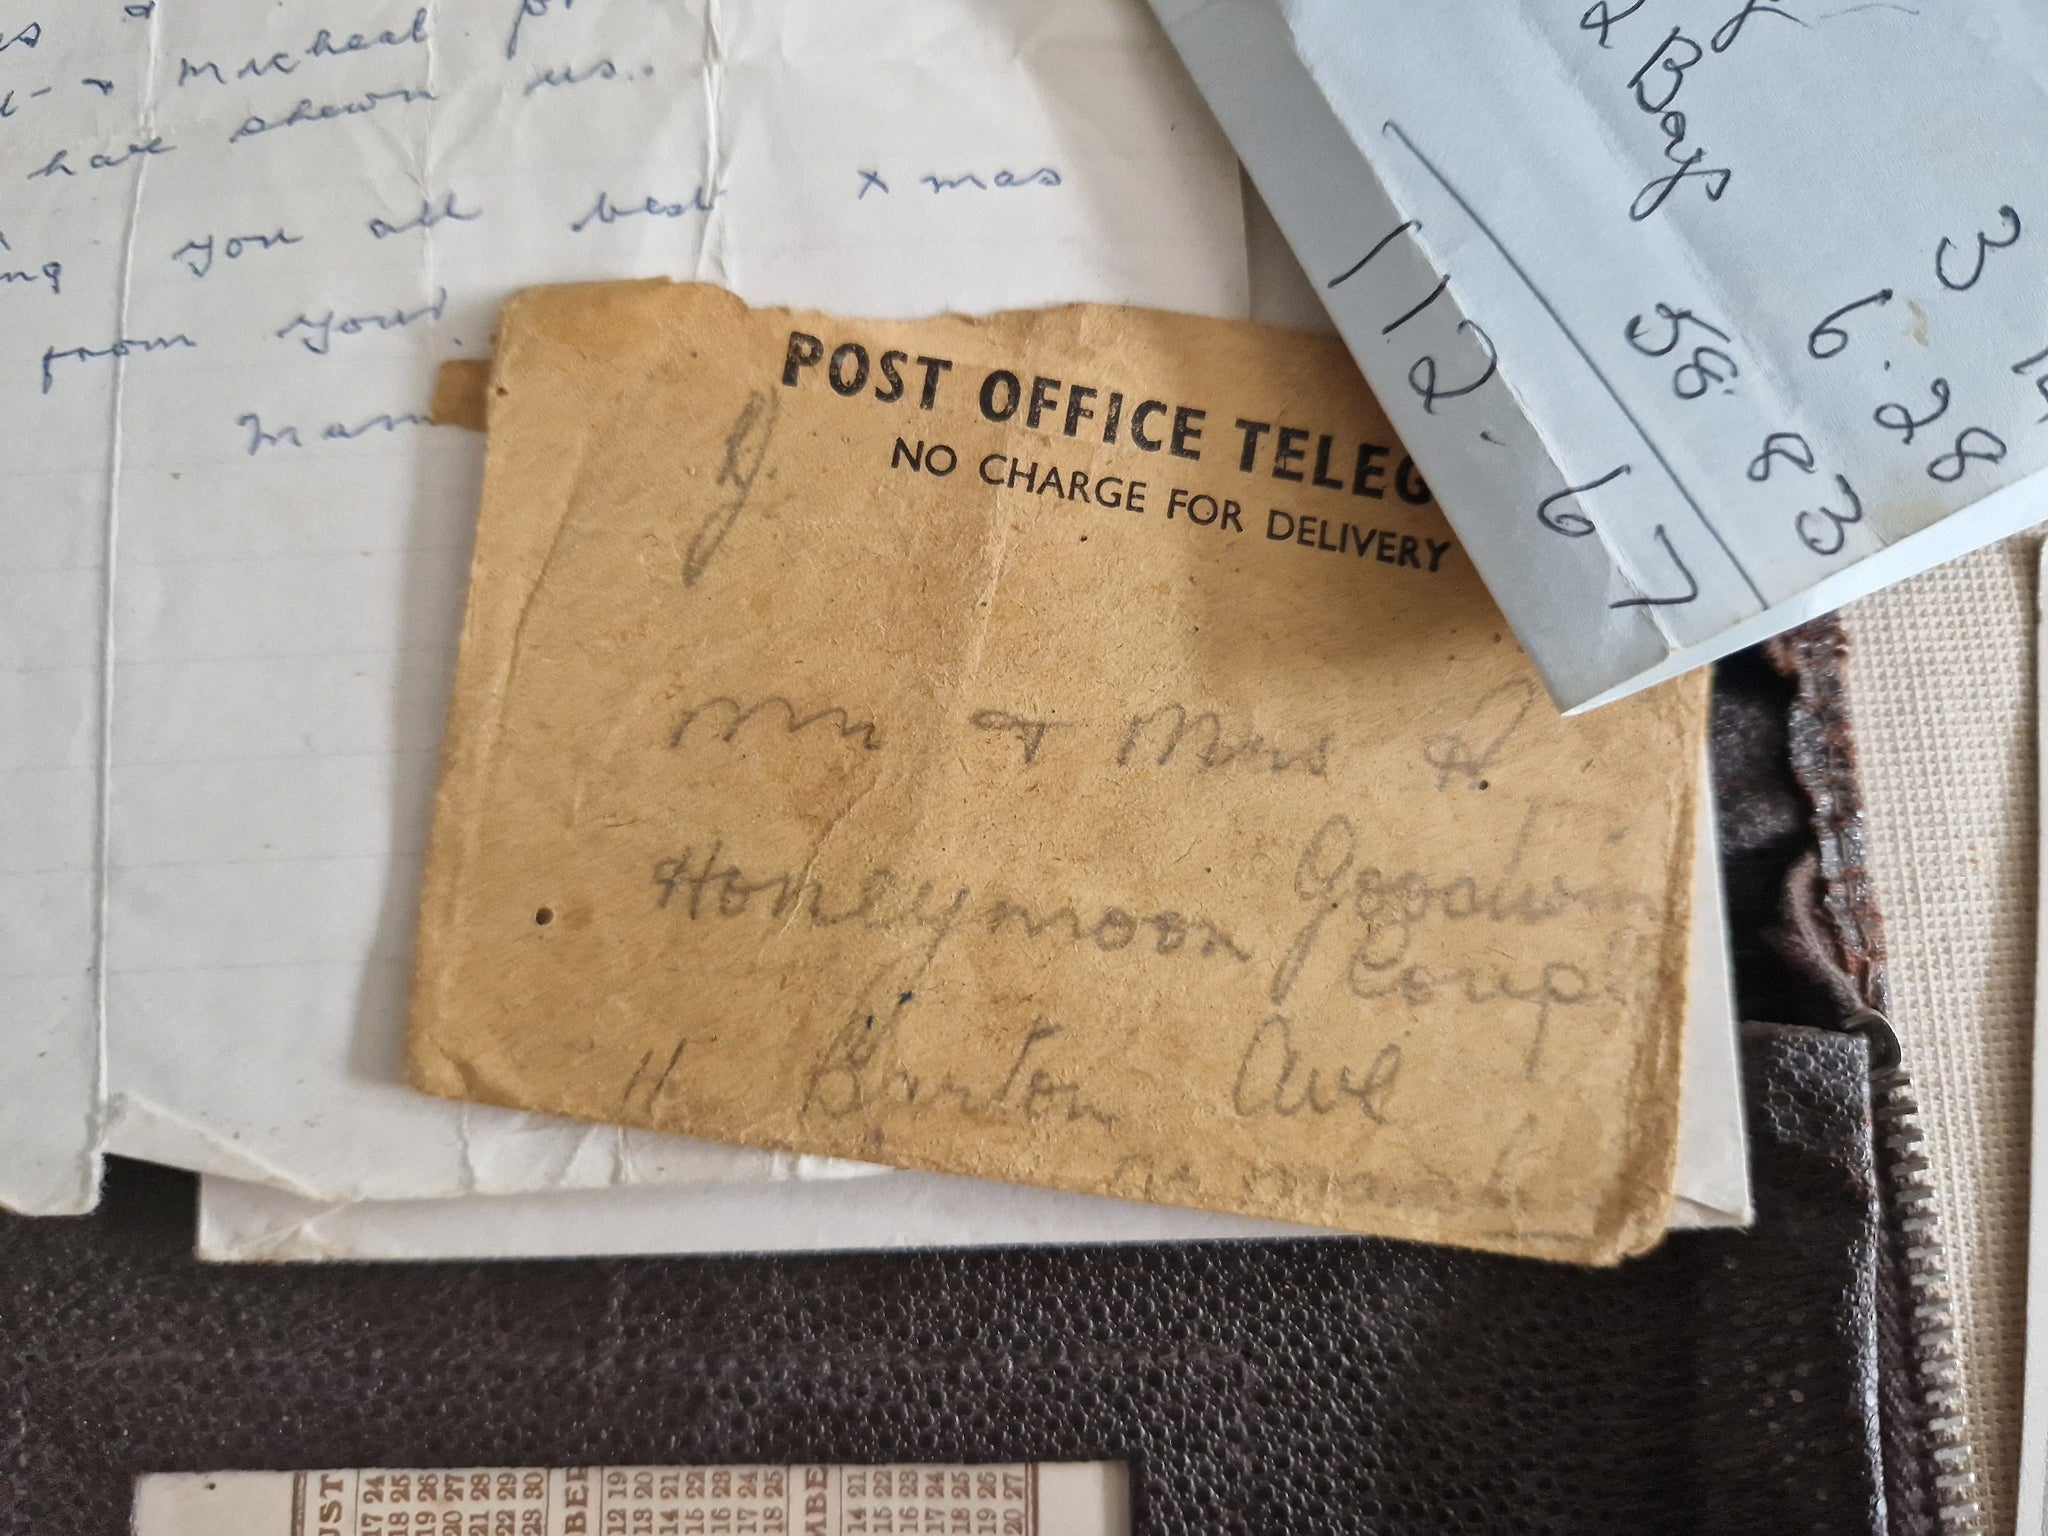 & Micheal for
have shown us..
you all best xmas
from your
Mam
2 Boys
3
6.28
58.83
112.67
POST OFFICE TELEG
NO CHARGE FOR DELIVERY
Mr & Mrs
Goodwin
Honeymoon Coup
11 Burton Ave
UST
17 24
18 25
19 26
20 27
21 28
22 29
23 30
BER
12 19
13 20
14 21
15 22
16 23
17 24
18 25
MBE
14 21
15 22
16 23
17 24
18 25
19 26
20 27